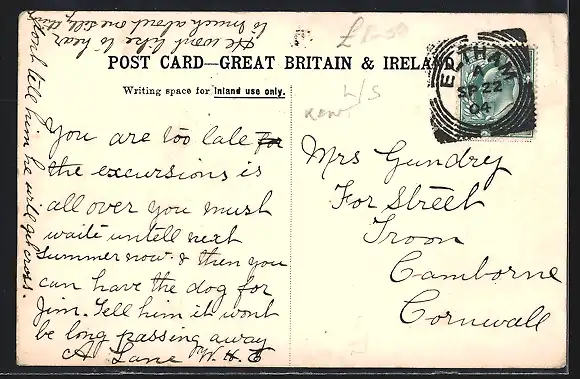 He wont like to hear
to much about one silly thing
dont tell him he will get cross.
£
POST CARD—GREAT BRITAIN & IRELAND
Writing space for Inland use only.
L/S
Kent
ELTHAM
SP 22
04
You are too late for
the excursions is
all over you must
waite untell next
Summer now & then you
can have the dog for
Jim. Tell him it wont
be long passing away
A Lane W.H.E
Mrs Gundrey
For Street
Troon
Camborne
Cornwall